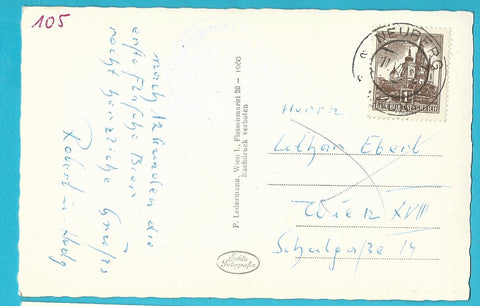 105
nach 12 Stunden die
erste
recht herzliche Grüße
Robert
P. Ledermann, Wien I., Fleischmarkt 20 - 1960
Nachdruck verboten
Echte
Fotografie
NEUBERG
Herrn
Lothar Ebert
Wien XVIII
Schulgaße 14